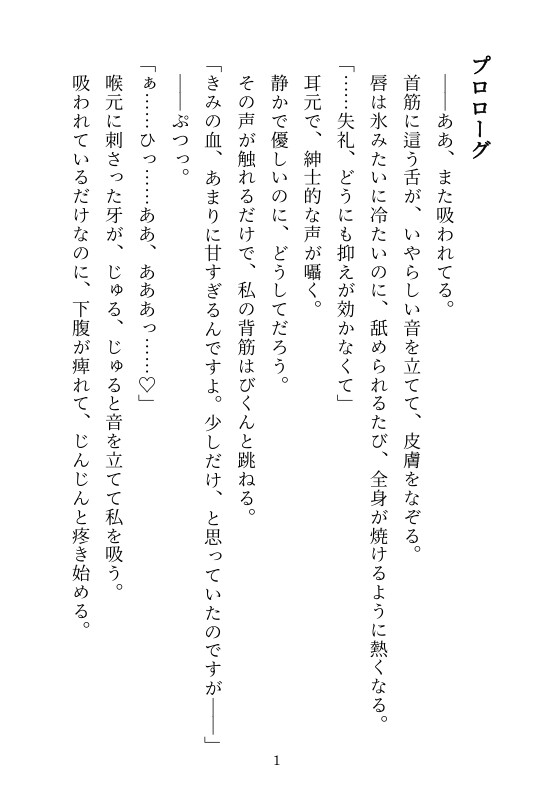 プロローグ
――ああ、また吸われてる。
首筋に這う舌が、いやらしい音を立てて、皮膚をなぞる。
唇は氷みたいに冷たいのに、舐められるたび、全身が焼けるように熱くなる。
「……失礼、どうにも抑えが効かなくて」
耳元で、紳士的な声が囁く。
静かで優しいのに、どうしてだろう。
その声が触れるだけで、私の背筋はびくんと跳ねる。
「きみの血、あまりに甘すぎるんですよ。少しだけ、と思っていたのですが――」
――ぷつっ。
「ぁ……ひっ……ああ、あああっ……♡」
喉元に刺さった牙が、じゅる、じゅると音を立てて私を吸う。
吸われているだけなのに、下腹が痺れて、じんじんと疼き始める。
1